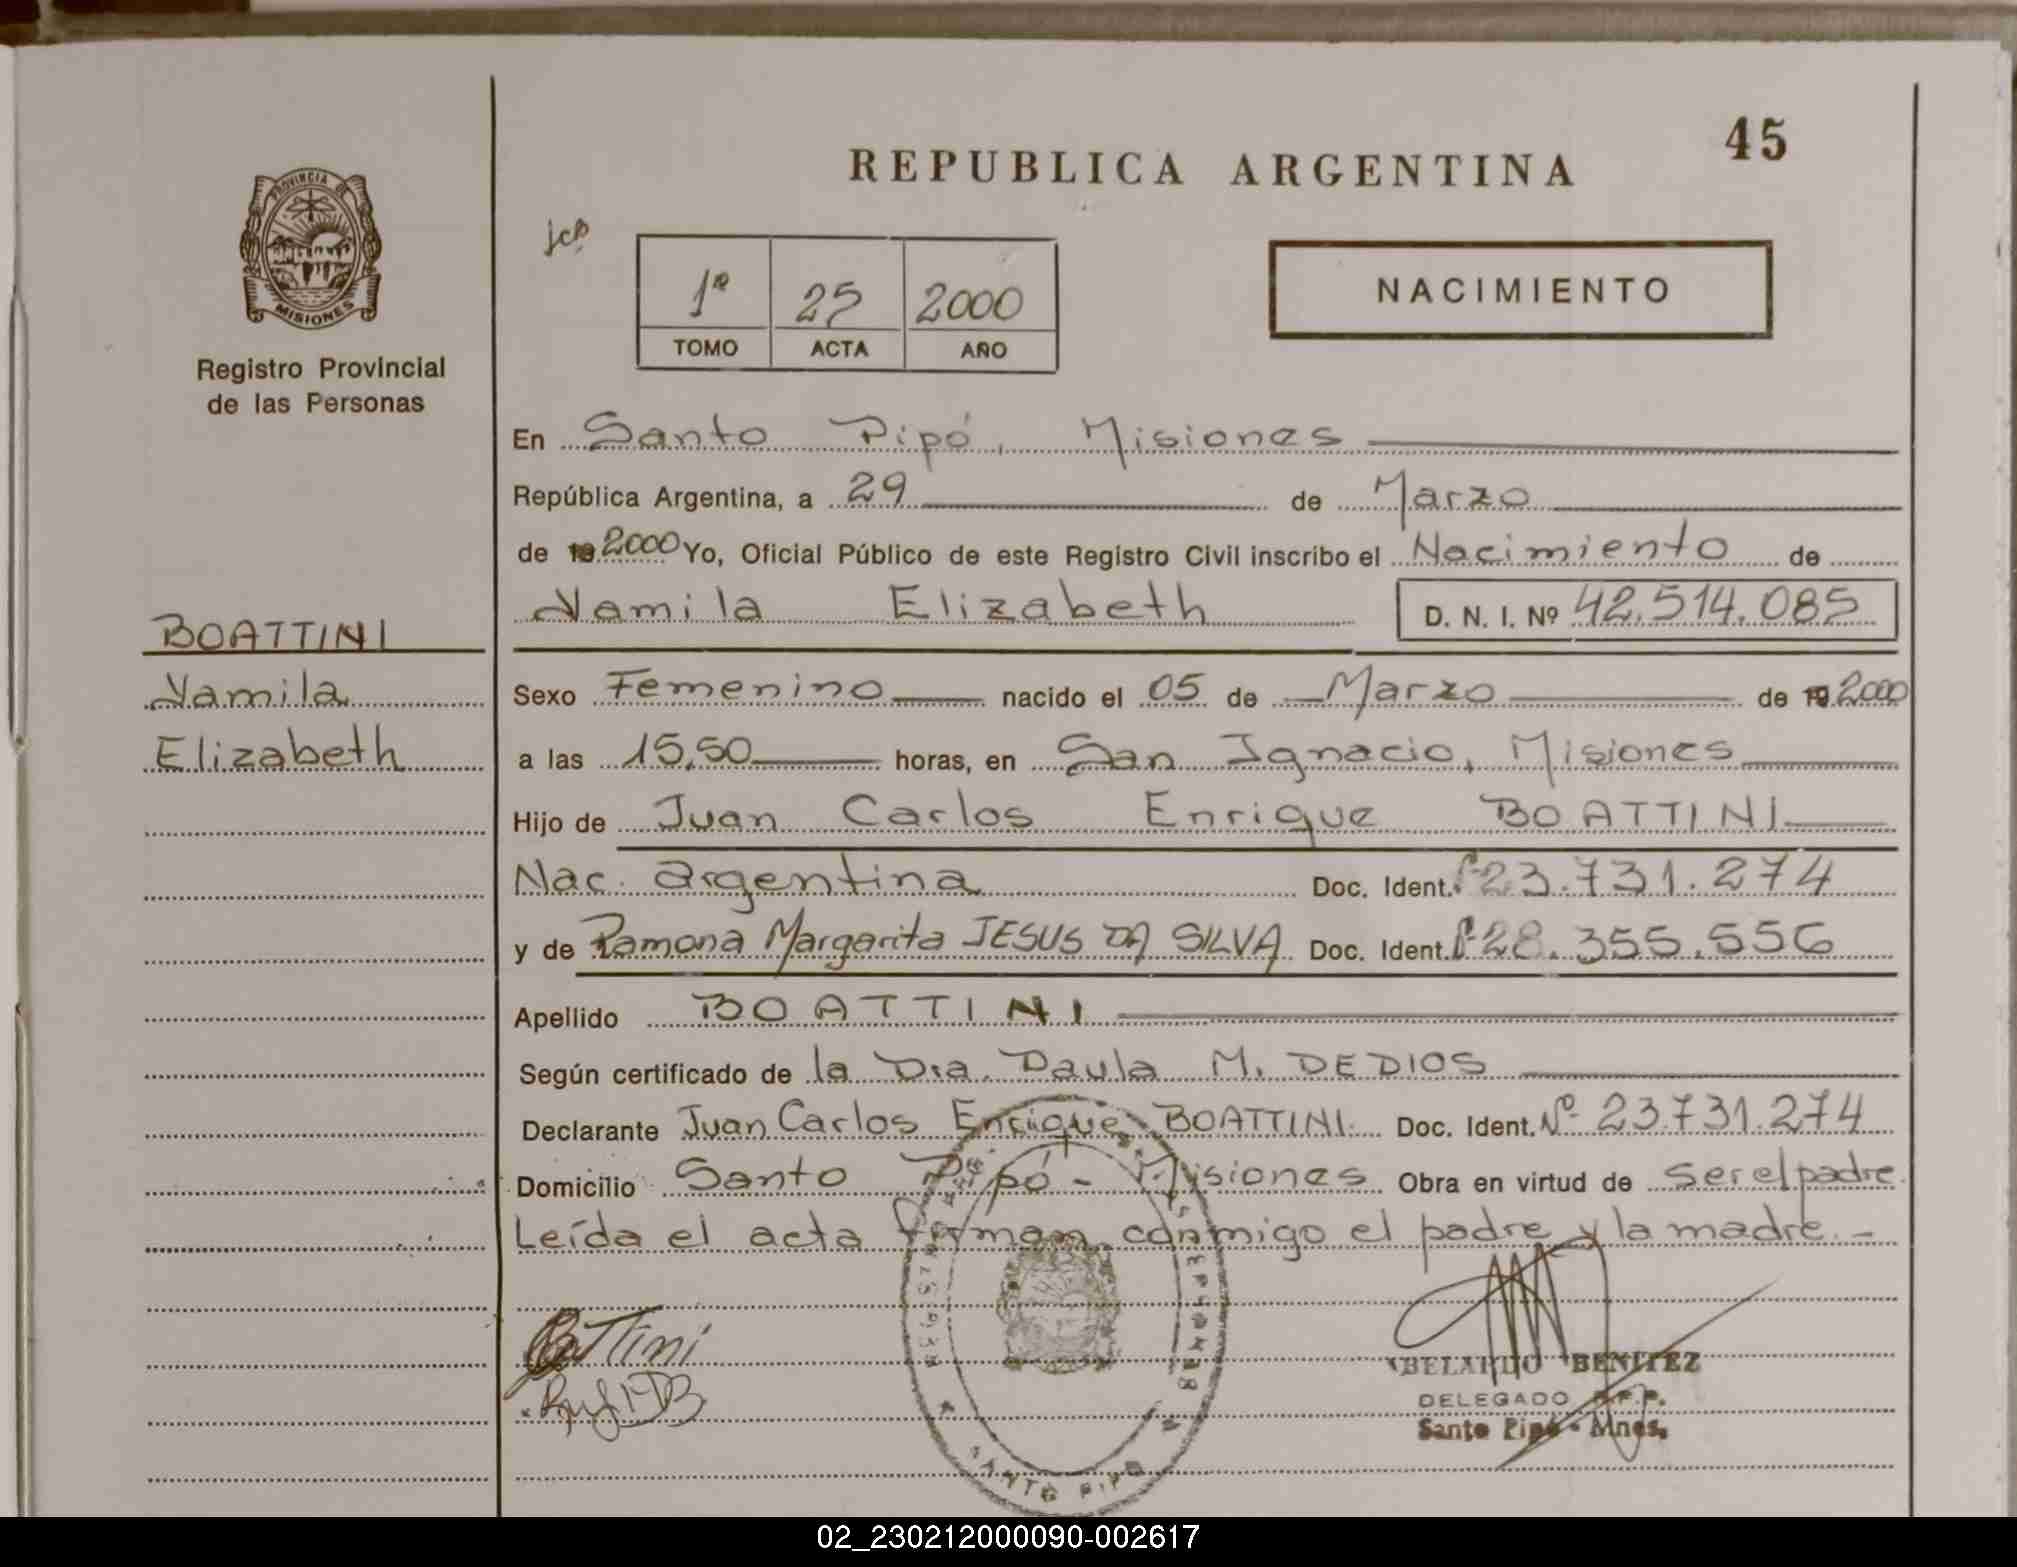 45
REPUBLICA ARGENTINA
PROVINCIA DE
MISIONES
Registro Provincial
de las Personas
jcb
1º 25 2000
TOMO ACTA AÑO
NACIMIENTO
En Santo Pipó, Misiones
República Argentina, a 29 de Marzo
de 19 2000 Yo, Oficial Público de este Registro Civil inscribo el Nacimiento de
Yamila Elizabeth D. N. I. Nº 42.514.085
BOATTINI
Yamila
Elizabeth
Sexo Femenino nacido el 05 de Marzo de 19 2000
a las 15,50 horas, en San Ignacio, Misiones
Hijo de Juan Carlos Enrique BOATTINI
Nac. argentina Doc. Ident. 23.731.274
y de Ramona Margarita JESUS DA SILVA Doc. Ident. 28.355.556
Apellido BOATTINI
Según certificado de la Dra. Paula M. DEDIOS
Declarante Juan Carlos Enrique BOATTINI Doc. Ident. Nº 23.731.274
Domicilio Santo Pipó - Misiones Obra en virtud de ser el padre.
Leída el acta firman conmigo el padre y la madre. -
Boattini
ABELARDO BENITEZ
DELEGADO R.P.P.
Santo Pipó - Mnes.
SANTO PIPO
02_230212000090-002617